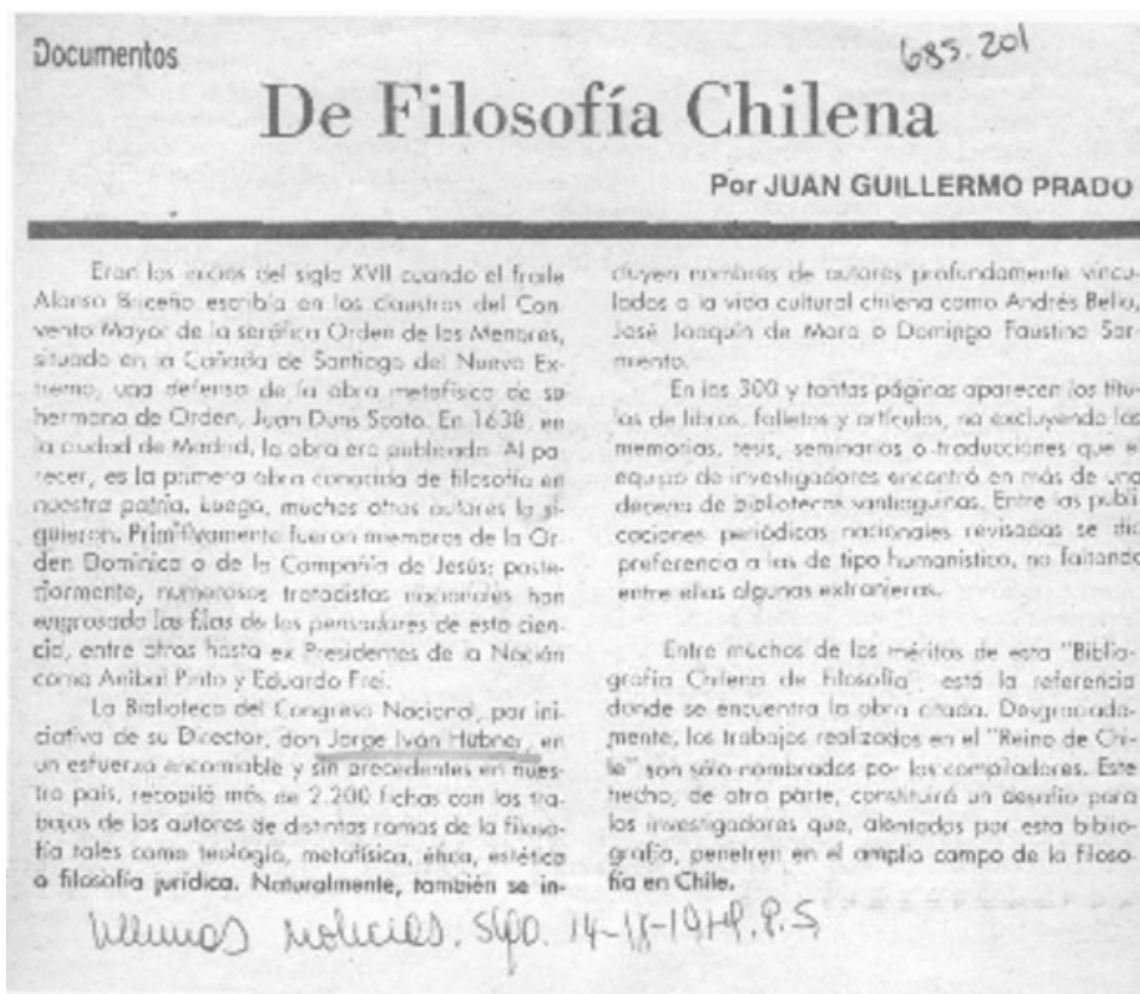 Documentos
685.201
De Filosofía Chilena
Por JUAN GUILLERMO PRADO
Eran los inicios del siglo XVII cuando el fraile
Alonso Briceño escribía en los claustros del Con-
vento Mayor de la seráfica Orden de los Menores,
situado en la Cañada de Santiago del Nuevo Ex-
tremo, una defensa de la obra metafísica de su
hermano de Orden, Juan Duns Scoto. En 1638, en
la ciudad de Madrid, la obra era publicada. Al pa-
recer, es la primera obra conocida de filosofía en
nuestra patria. Luego, muchos otros autores la si-
guieron. Primitivamente fueron miembros de la Or-
den Dominica o de la Compañía de Jesús; poste-
riormente, numerosos tratadistas nacionales han
engrosado las filas de los pensadores de esta cien-
cia, entre otros hasta ex Presidentes de la Nación
como Aníbal Pinto y Eduardo Frei.
La Biblioteca del Congreso Nacional, por ini-
ciativa de su Director, don Jorge Iván Hübner, en
un esfuerzo encomiable y sin precedentes en nues-
tro país, recopiló más de 2.200 fichas con los tra-
bajos de los autores de distintas ramas de la filoso-
fía tales como teología, metafísica, ética, estética
o filosofía jurídica. Naturalmente, también se in-
cluyen nombres de autores profundamente vincu-
lados a la vida cultural chilena como Andrés Bello,
José Joaquín de Mora o Domingo Faustino Sar-
miento.
En las 300 y tantas páginas aparecen los títu-
los de libros, folletos y artículos, no excluyendo las
memorias, tesis, seminarios o traducciones que el
equipo de investigadores encontró en más de una
decena de bibliotecas santiaguinas. Entre las publi-
caciones periódicas nacionales revisadas se dio
preferencia a las de tipo humanístico, no faltando
entre ellas algunas extranjeras.
Entre muchos de los méritos de esta "Biblio-
grafía Chilena de Filosofía", está la referencia
donde se encuentra la obra citada. Desgraciada-
mente, los trabajos realizados en el "Reino de Chi-
le" son sólo nombrados por los compiladores. Este
hecho, de otra parte, constituirá un desafío para
los investigadores que, alentados por esta biblio-
grafía, penetren en el amplio campo de la filoso-
fía en Chile.
Últimas Noticias. Stgo. P. 5